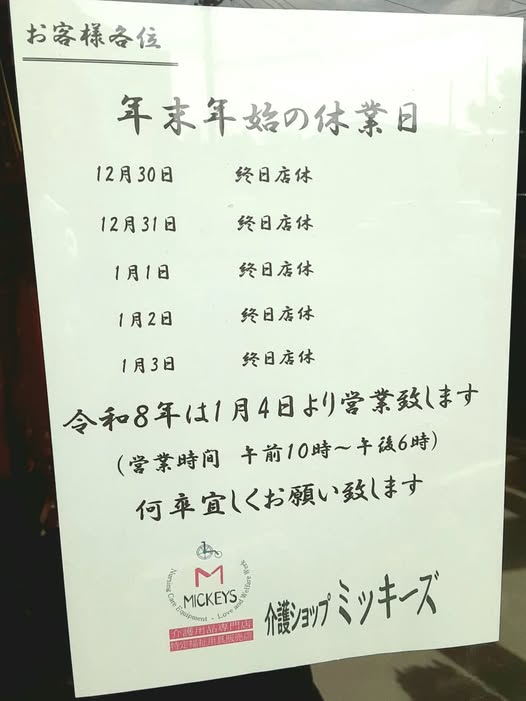 お客様各位
年末年始の休業日
12月30日 終日店休
12月31日 終日店休
1月1日 終日店休
1月2日 終日店休
1月3日 終日店休
令和8年は1月4日より営業致します
(営業時間 午前10時～午後6時)
何卒宜しくお願い致します
M
MICKEYS
Nursing Care Equipment - Love and Welfare Work
介護用品専門店
特定福祉用具販売店
介護ショップ ミッキーズ